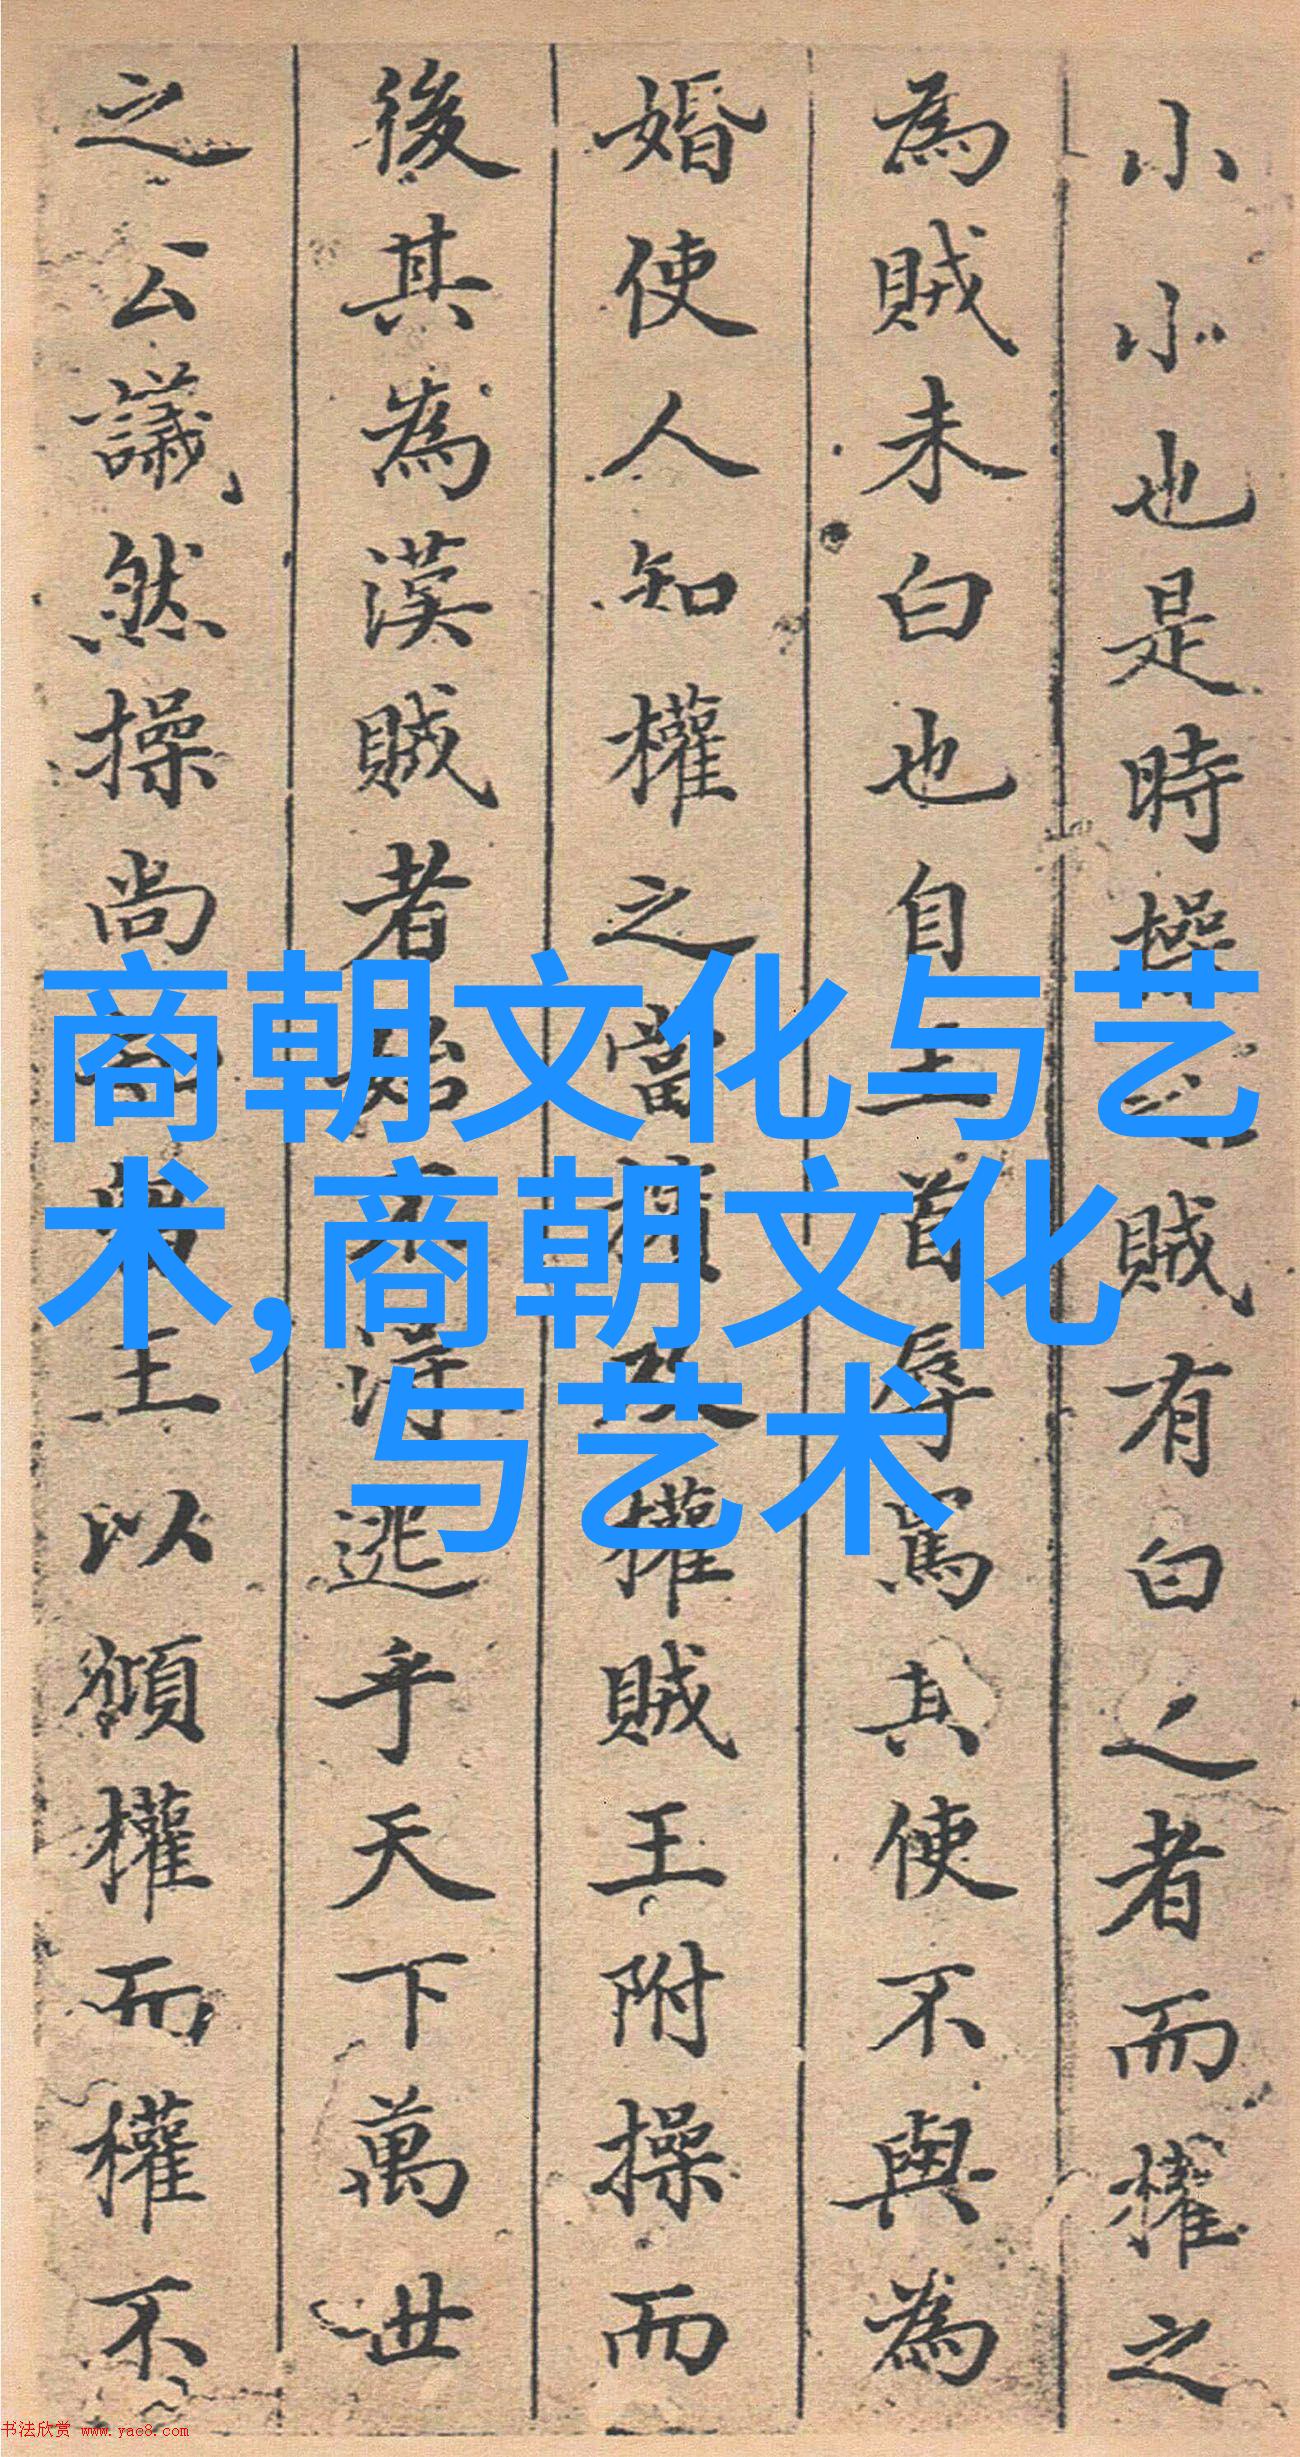 小小也是時操之賊有白之者而權之
為賊未白也自上首辱罵其使不與為
婚使人知權之當權賊王附操而
後其為漢賊者始不得逃乎天下萬世
之公議然操尚王以頒權而權不
商朝文化与艺
术,商朝文化
与艺术
书法欣赏 www.yac8.com